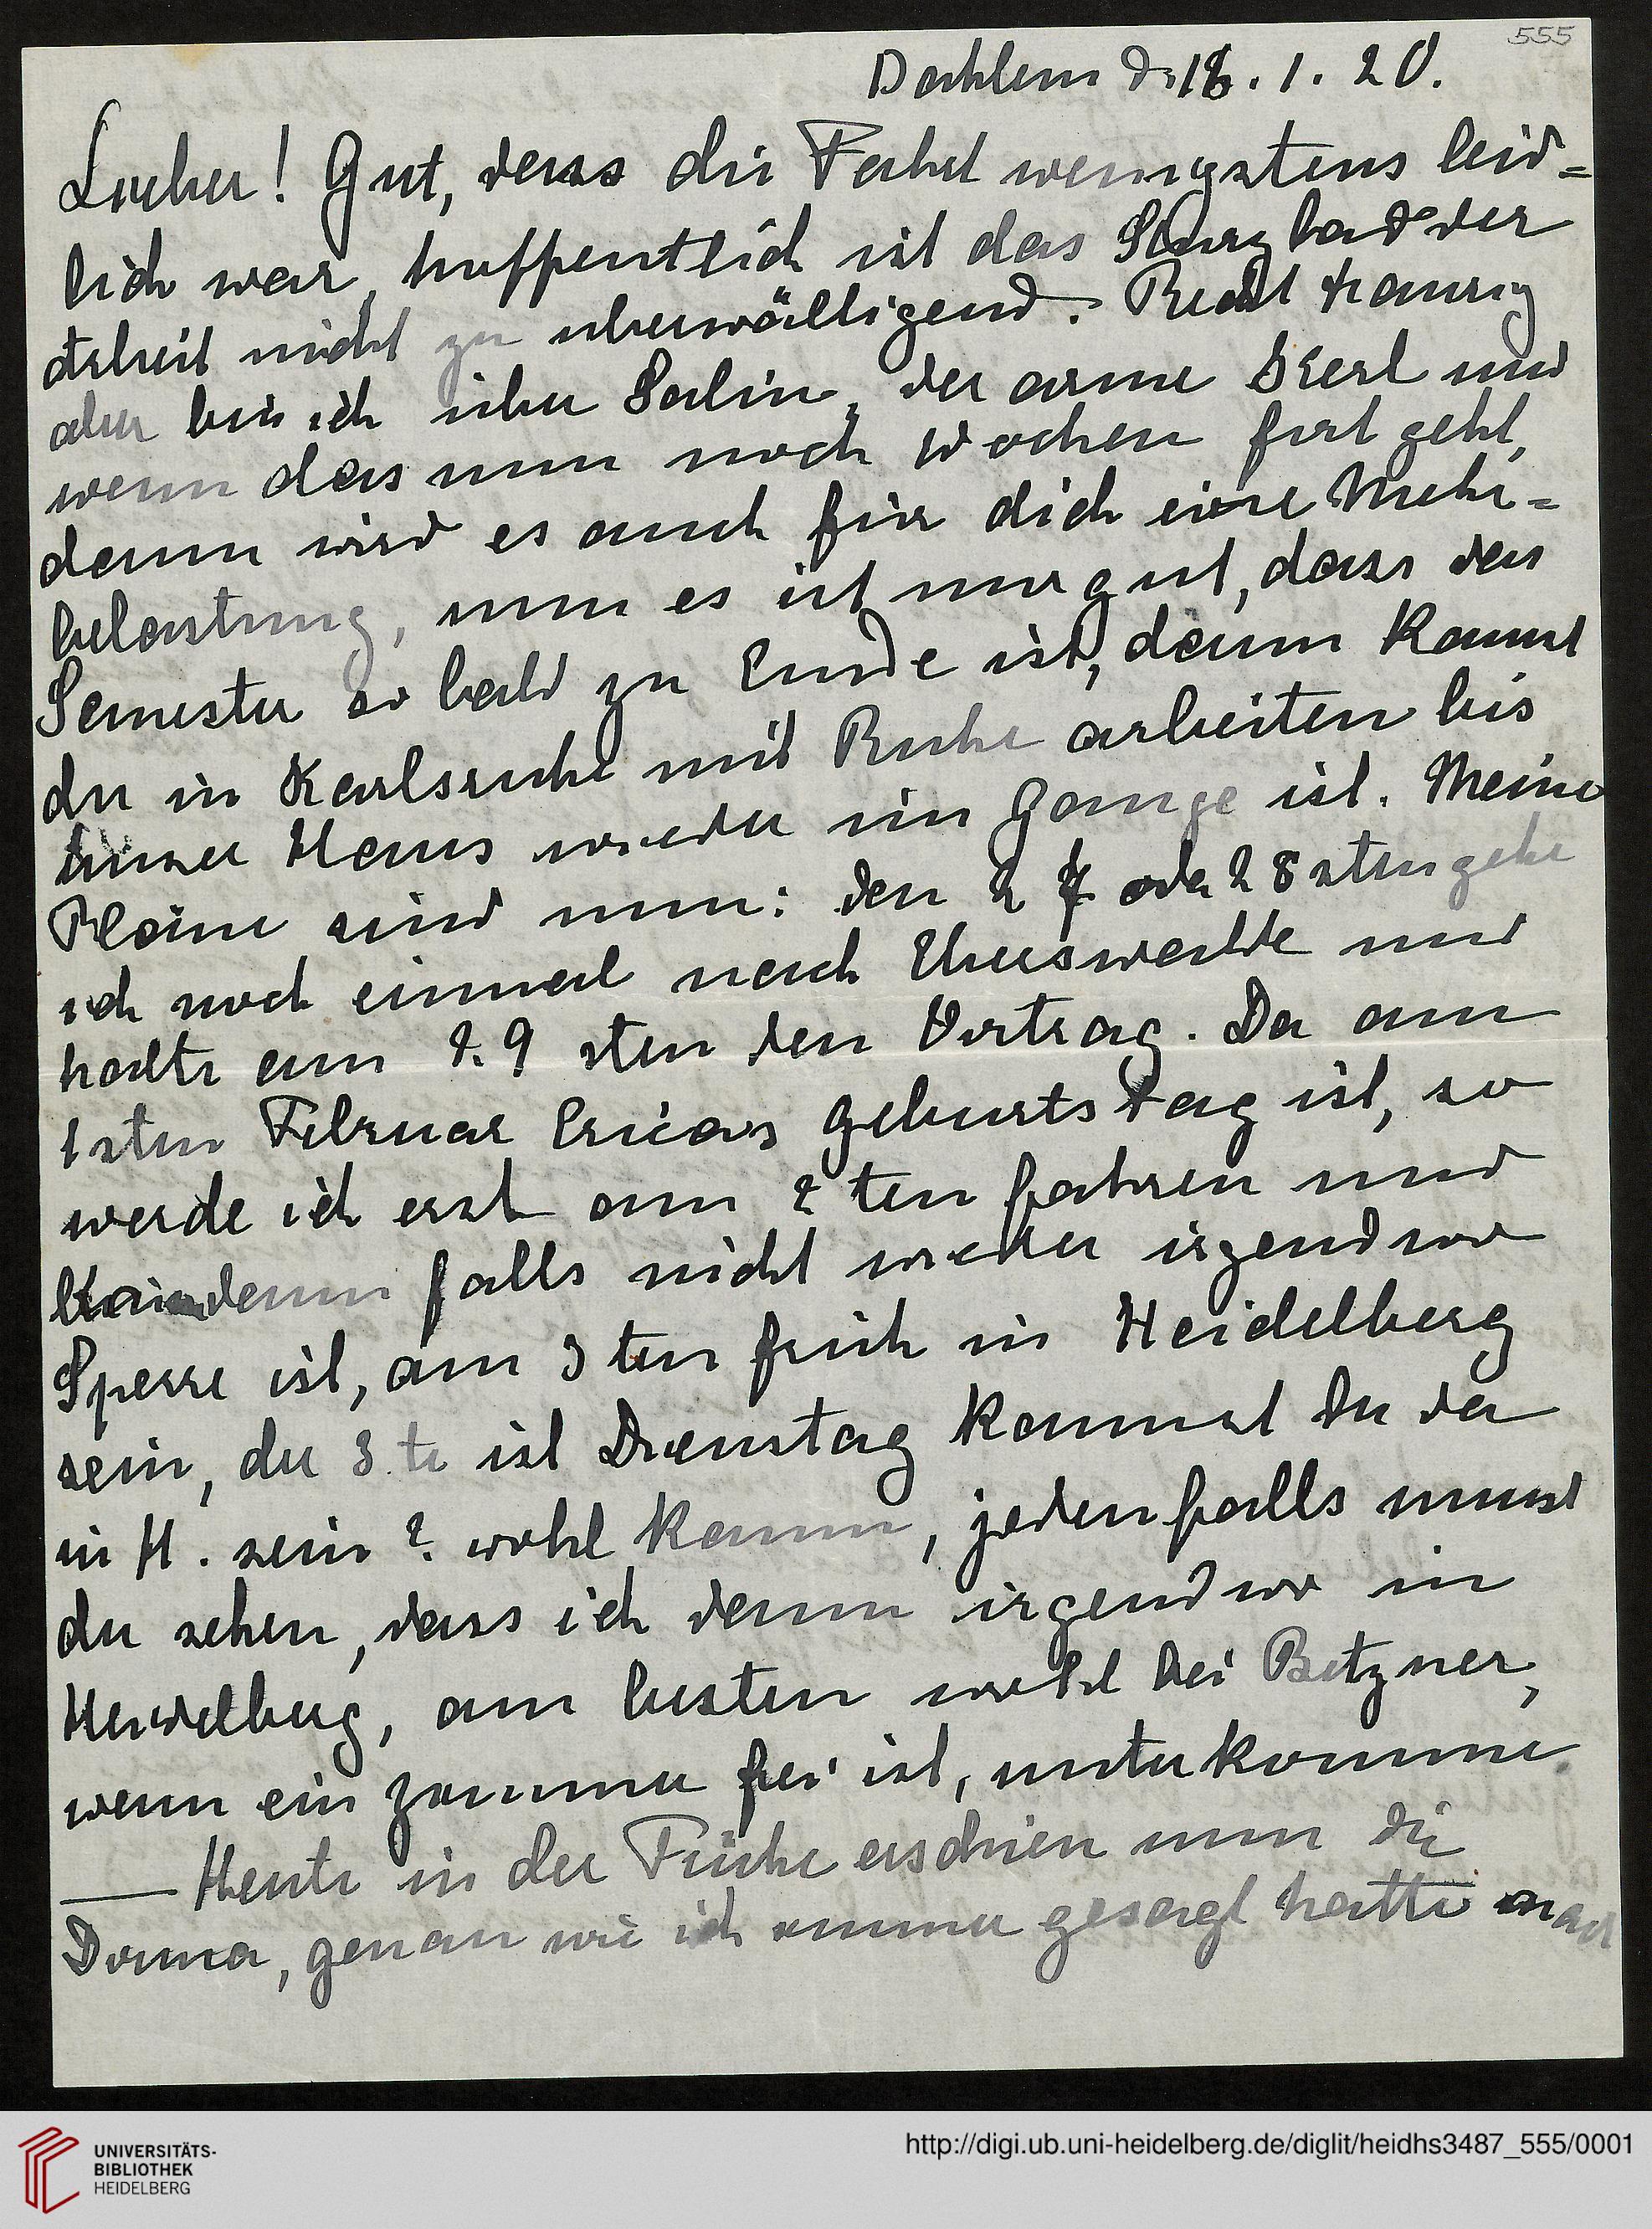 555
Dahlem d. 18. 1. 20.
Lieber! Gut, dass die Fahrt wenigstens leid=
lich war, hoffentlich ist das Sturzbad der
Arbeit nicht zu überwältigend. Recht traurig
aber bin ich über Salin, der arme Kerl und
wenn das nun noch Wochen fort geht,
dann wird es auch für dich eine Mehr=
belastung, nun es ist nur gut, dass das
Semester so bald zu Ende ist, dann kannst
du in Karlsruhe mit Ruhe arbeiten bis
unser Haus wieder im Gange ist. Meine
Pläne sind nun: den 27 oder 28sten gehe
ich noch einmal nach Eberswalde und
halte am 29sten den Vortrag. Da am
1sten Februar Ericas Geburtstag ist, so
werde ich erst am 2ten fahren und
dann falls nicht wieder irgendwo
Sperre ist, am 3ten früh in Heidelberg
sein, der 3.te ist Dienstag kannst du da
in H. sein? wohl kaum, jedenfalls musst
du sehen, dass ich dann irgendwo in
Heidelberg, am besten wohl bei Betzner,
wenn ein Zimmer frei ist, unterkomme.
— Heute in der Frühe erschien nun die
Donna, genau wie ich immer gesagt hatte
UNIVERSITÄTS-
BIBLIOTHEK
HEIDELBERG
http://digi.ub.uni-heidelberg.de/diglit/heidhs3487_555/0001